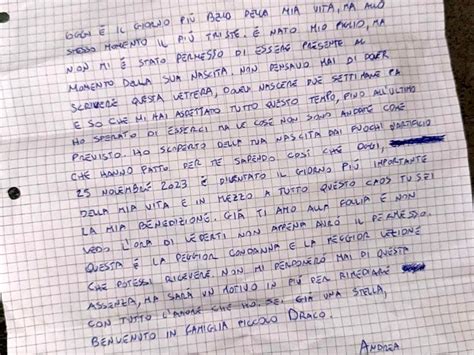 OGGI È IL GIORNO PIÙ BELLO DELLA MIA VITA, MA ALLO
STESSO MOMENTO IL PIÙ TRISTE. È NATO MIO FIGLIO, MA
NON MI È STATO PERMESSO DI ESSERE PRESENTE AL
MOMENTO DELLA SUA NASCITA. NON PENSAVO MAI DI DOVER
SCRIVERE QUESTA LETTERA, DOVEVI NASCERE DUE SETTIMANE FA
E SO CHE MI HAI ASPETTATO TUTTO QUESTO TEMPO, FINO ALL'ULTIMO
HO SPERATO DI ESSERCI MA LE COSE NON SONO ANDATE COME
PREVISTO. HO SCOPERTO DELLA TUA NASCITA DAI FUOCHI D'ARTIFICIO
CHE HANNO FATTO PER TE SAPENDO COSÌ CHE OGGI,
25 NOVEMBRE 2023 È DIVENTATO IL GIORNO PIÙ IMPORTANTE
DELLA MIA VITA E IN MEZZO A TUTTO QUESTO CAOS TU SEI
LA MIA BENEDIZIONE. GIÀ TI AMO ALLA FOLLIA E NON
VEDO L'ORA DI VEDERTI NON APPENA AVRÒ IL PERMESSO.
QUESTA È LA PEGGIOR CONDANNA E LA PEGGIOR LEZIONE
CHE POTESSI RICEVERE. NON MI PERDONERÒ MAI DI QUESTA
ASSENZA, MA SARÀ UN MOTIVO IN PIÙ PER RIMEDIARE
CON TUTTO L'AMORE CHE HO. SEI GIÀ UNA STELLA,
BENVENUTO IN FAMIGLIA PICCOLO DRACO.
ANDREA